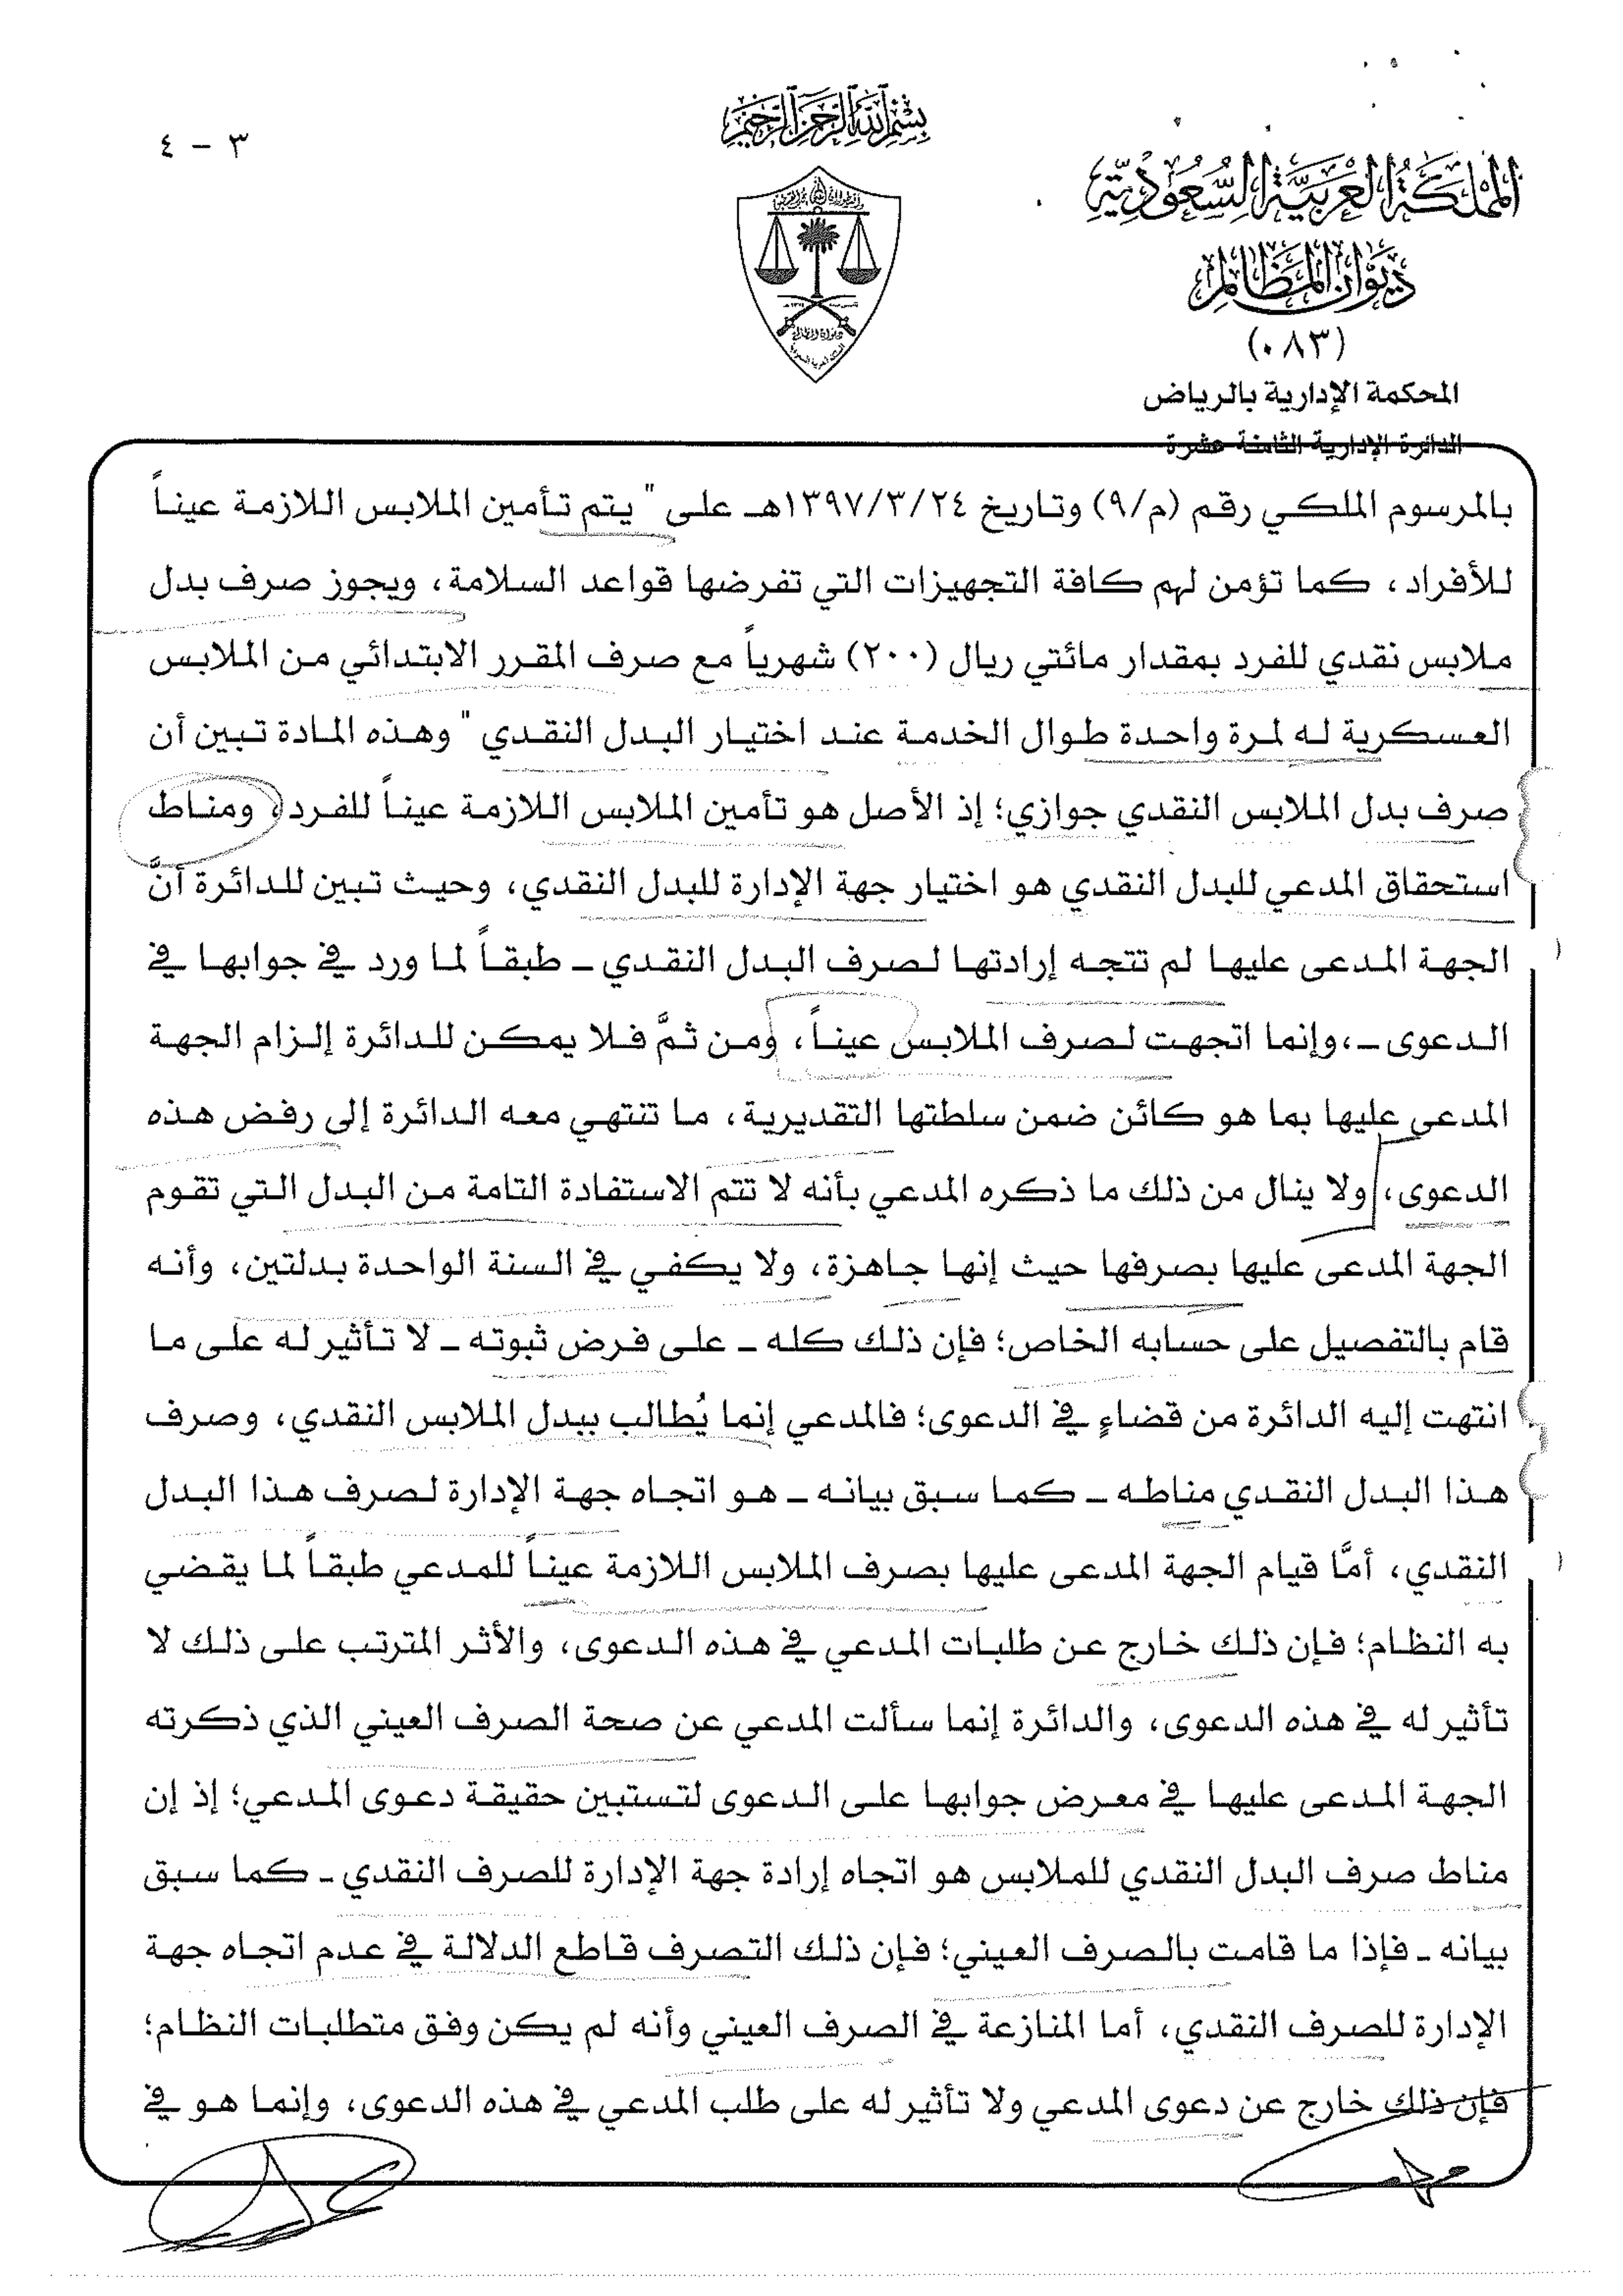 ٣ - ٤
بسم الله الرحمن الرحيم
المملكة العربية السعودية
ديوان المظالم
(٠٨٣)
المحكمة الإدارية بالرياض
الدائرة الإدارية الثامنة عشرة
بالمرسوم الملكي رقم (م/٩) وتاريخ ١٣٩٧/٣/٢٤هـ على " يتم تأمين الملابس اللازمة عيناً
للأفراد، كما تؤمن لهم كافة التجهيزات التي تفرضها قواعد السلامة، ويجوز صرف بدل
ملابس نقدي للفرد بمقدار مائتي ريال (٢٠٠) شهرياً مع صرف المقرر الابتدائي من الملابس
العسكرية له لمرة واحدة طوال الخدمة عند اختيار البدل النقدي " وهذه المادة تبين أن
صرف بدل الملابس النقدي جوازي؛ إذ الأصل هو تأمين الملابس اللازمة عيناً للفرد، ومناط
استحقاق المدعي للبدل النقدي هو اختيار جهة الإدارة للبدل النقدي، وحيث تبين للدائرة أنَّ
الجهة المدعى عليها لم تتجه إرادتها لصرف البدل النقدي ـ طبقاً لما ورد في جوابها في
الدعوى ـ، وإنما اتجهت لصرف الملابس عيناً، ومن ثمَّ فلا يمكن للدائرة إلزام الجهة
المدعى عليها بما هو كائن ضمن سلطتها التقديرية، ما تنتهي معه الدائرة إلى رفض هذه
الدعوى، ولا ينال من ذلك ما ذكره المدعي بأنه لا تتم الاستفادة التامة من البدل التي تقوم
الجهة المدعى عليها بصرفها حيث إنها جاهزة، ولا يكفي في السنة الواحدة بدلتين، وأنه
قام بالتفصيل على حسابه الخاص؛ فإن ذلك كله ـ على فرض ثبوته ـ لا تأثير له على ما
انتهت إليه الدائرة من قضاءٍ في الدعوى؛ فالمدعي إنما يُطالب ببدل الملابس النقدي، وصرف
هذا البدل النقدي مناطه ـ كما سبق بيانه ـ هو اتجاه جهة الإدارة لصرف هذا البدل
النقدي، أمَّا قيام الجهة المدعى عليها بصرف الملابس اللازمة عيناً للمدعي طبقاً لما يقضي
به النظام؛ فإن ذلك خارج عن طلبات المدعي في هذه الدعوى، والأثر المترتب على ذلك لا
تأثير له في هذه الدعوى، والدائرة إنما سألت المدعي عن صحة الصرف العيني الذي ذكرته
الجهة المدعى عليها في معرض جوابها على الدعوى لتستبين حقيقة دعوى المدعي؛ إذ إن
مناط صرف البدل النقدي للملابس هو اتجاه إرادة جهة الإدارة للصرف النقدي ـ كما سبق
بيانه ـ فإذا ما قامت بالصرف العيني؛ فإن ذلك التصرف قاطع الدلالة في عدم اتجاه جهة
الإدارة للصرف النقدي، أما المنازعة في الصرف العيني وأنه لم يكن وفق متطلبات النظام؛
فإن ذلك خارج عن دعوى المدعي ولا تأثير له على طلب المدعي في هذه الدعوى، وإنما هو في